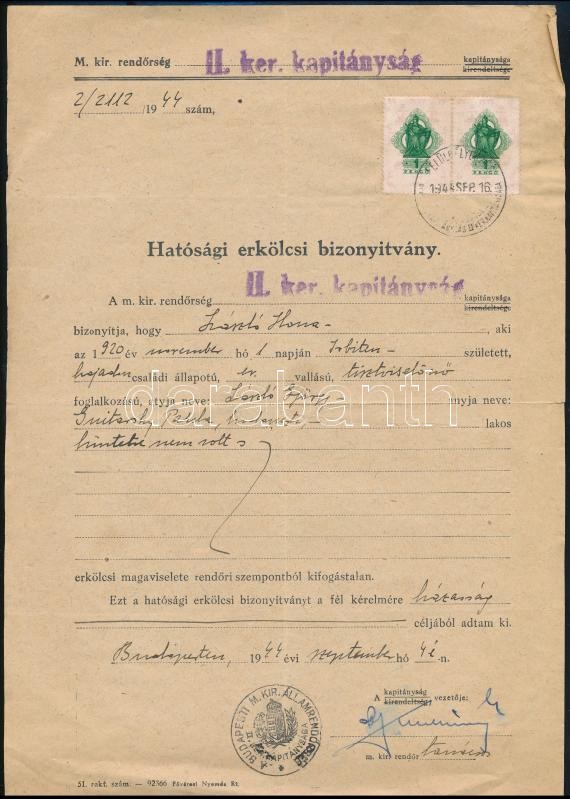 M. kir. rendőrség II. ker. kapitányság kapitánysága
kirendeltsége
2/2112 /19 44 szám,
1 PENGŐ 1 PENGŐ
1944 SEP. 16.
Hatósági erkölcsi bizonyitvány.
II. ker. kapitányság
A m. kir. rendőrség kapitánysága
kirendeltsége
bizonyítja, hogy László Ilona , aki
az 1920 év november hó 1 napján született,
hajadon családi állapotú, ev. vallású, tisztviselőnő
foglalkozású, atyja neve: László György anyja neve:
budapesti lakos
büntetve nem volt s
erkölcsi magaviselete rendőri szempontból kifogástalan.
Ezt a hatósági erkölcsi bizonyitványt a fél kérelmére házasság
céljából adtam ki.
Budapesten, 1944 évi szeptember hó -n.
A kapitányság
kirendeltség vezetője:
m. kir. rendőr tanácsos
BUDAPESTI M. KIR. ÁLLAMRENDŐRSÉG
II. KER. KAPITÁNYSÁGA
51. rakt. szám. — 92366 Fővárosi Nyomda Rt.
darabanth